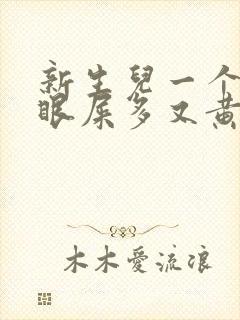 新生兒一个
眼屎多又黄
木木愛流浪